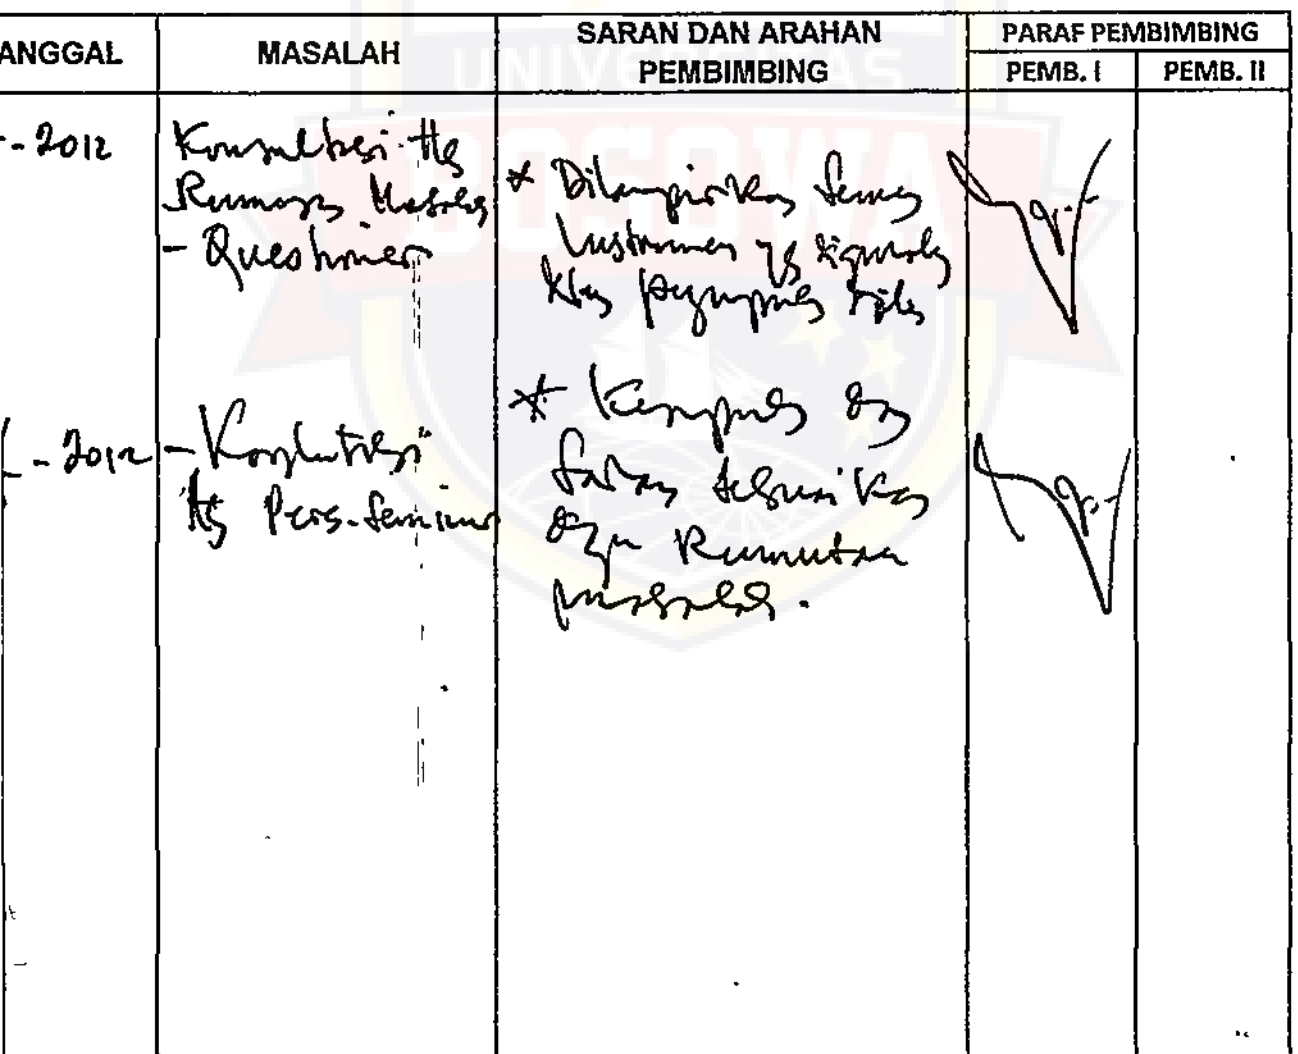 ANGGAL
MASALAH
SARAN DAN ARAHAN
PEMBIMBING
PARAF PEMBIMBING
PEMB. I
PEMB. II
UNIVERSITAS
BOSOWA
- 2012
Konsultasi ttg
Rumusan Masalah
- Questioner
* Dilampirkan semua
Instrumen yg digunakan
data
- 2012
- Konsultasi
ttg Pers. Seminar
* Kesimpulan dan
Saran sesuaikan
dgn Rumusan
masalah.